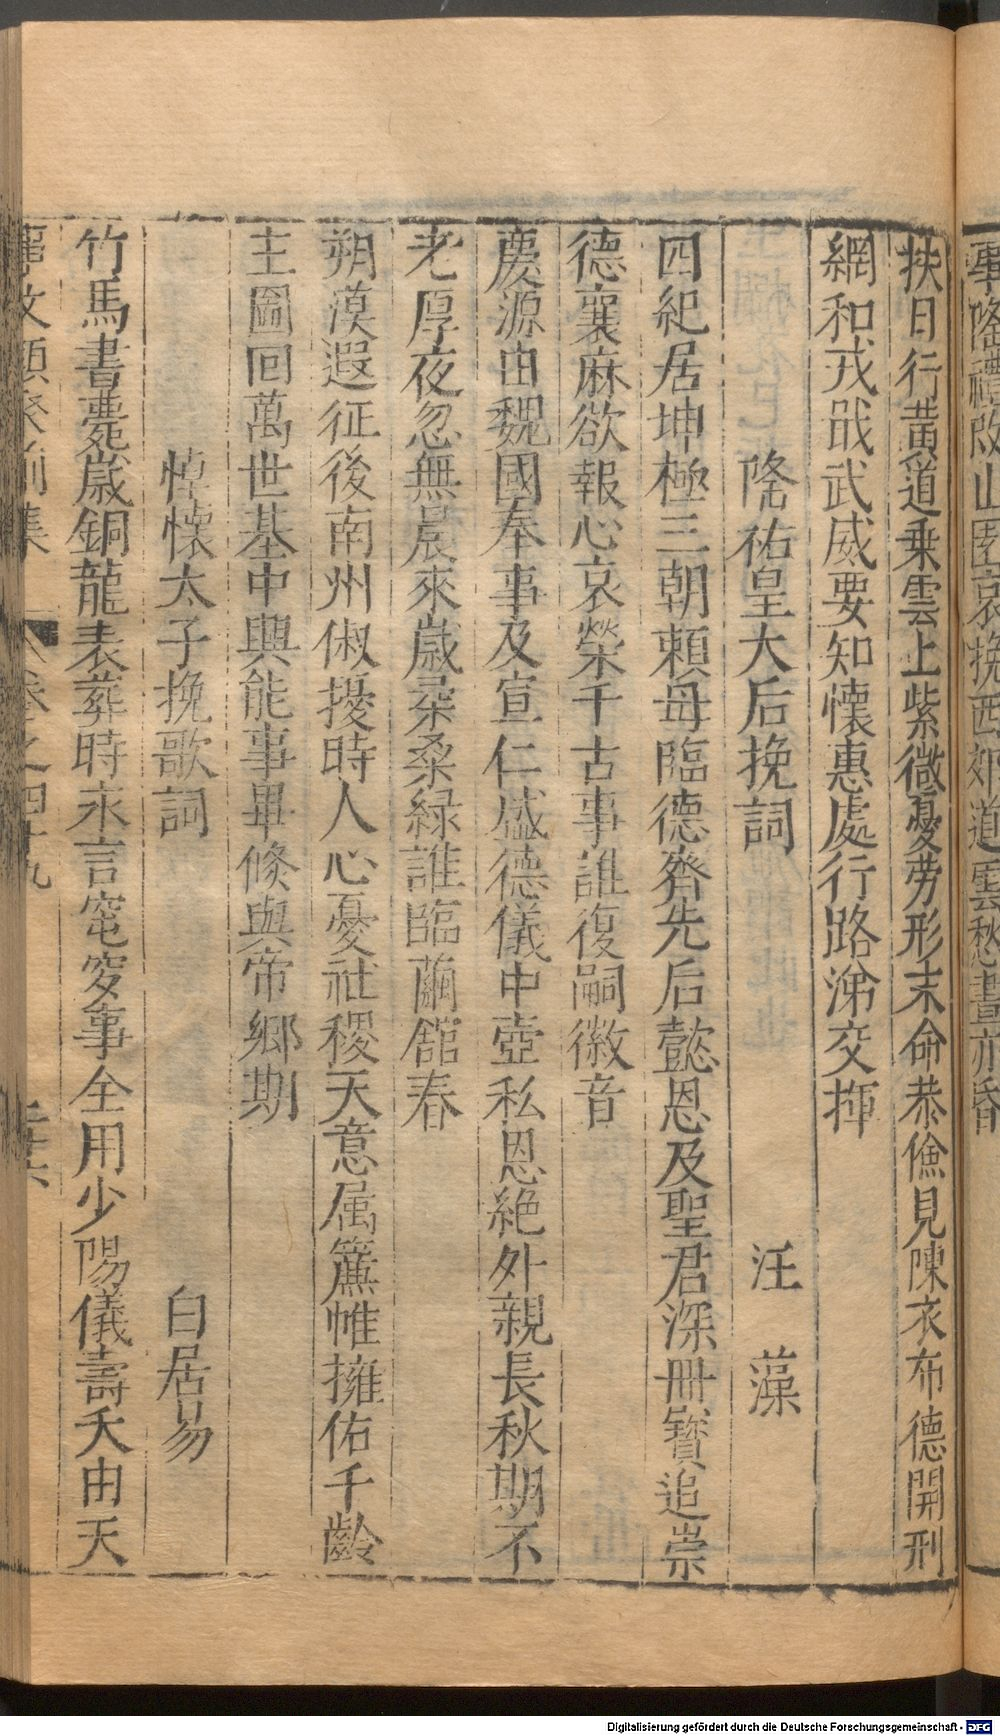 隆禮改山園哀挽西郊道雲愁晝亦昏
扶日行黃道乗雲上紫微憂勞形末命恭儉見陳衣布德開刑
網和戎戢武威要知懷惠處行路涕交揮
隆祐皇大后挽詞　汪　藻
四紀居坤極三朝賴母臨德齊先后懿恩及聖君深冊寶追崇
德襄麻欲報心哀榮千古事誰復嗣徽音
慶源由魏國奉事及宣仁盛德儀中壺私恩絶外親長秋期不
老厚夜忽無晨來歲柔桑緑誰臨繭館春
朔漠遐征後南州俶擾時人心憂社稷天意属簾帷擁佑千齡
主圖回萬世基中興能事畢倐與帝郷期
悼懐太子挽歌詞　白居易
竹馬書薨歳銅龍表葬時永言窀穸事全用少陽儀壽夭由天
文類聚前集　卷之四十九　二十六
Digitalisierung gefördert durch die Deutsche Forschungsgemeinschaft - DFG